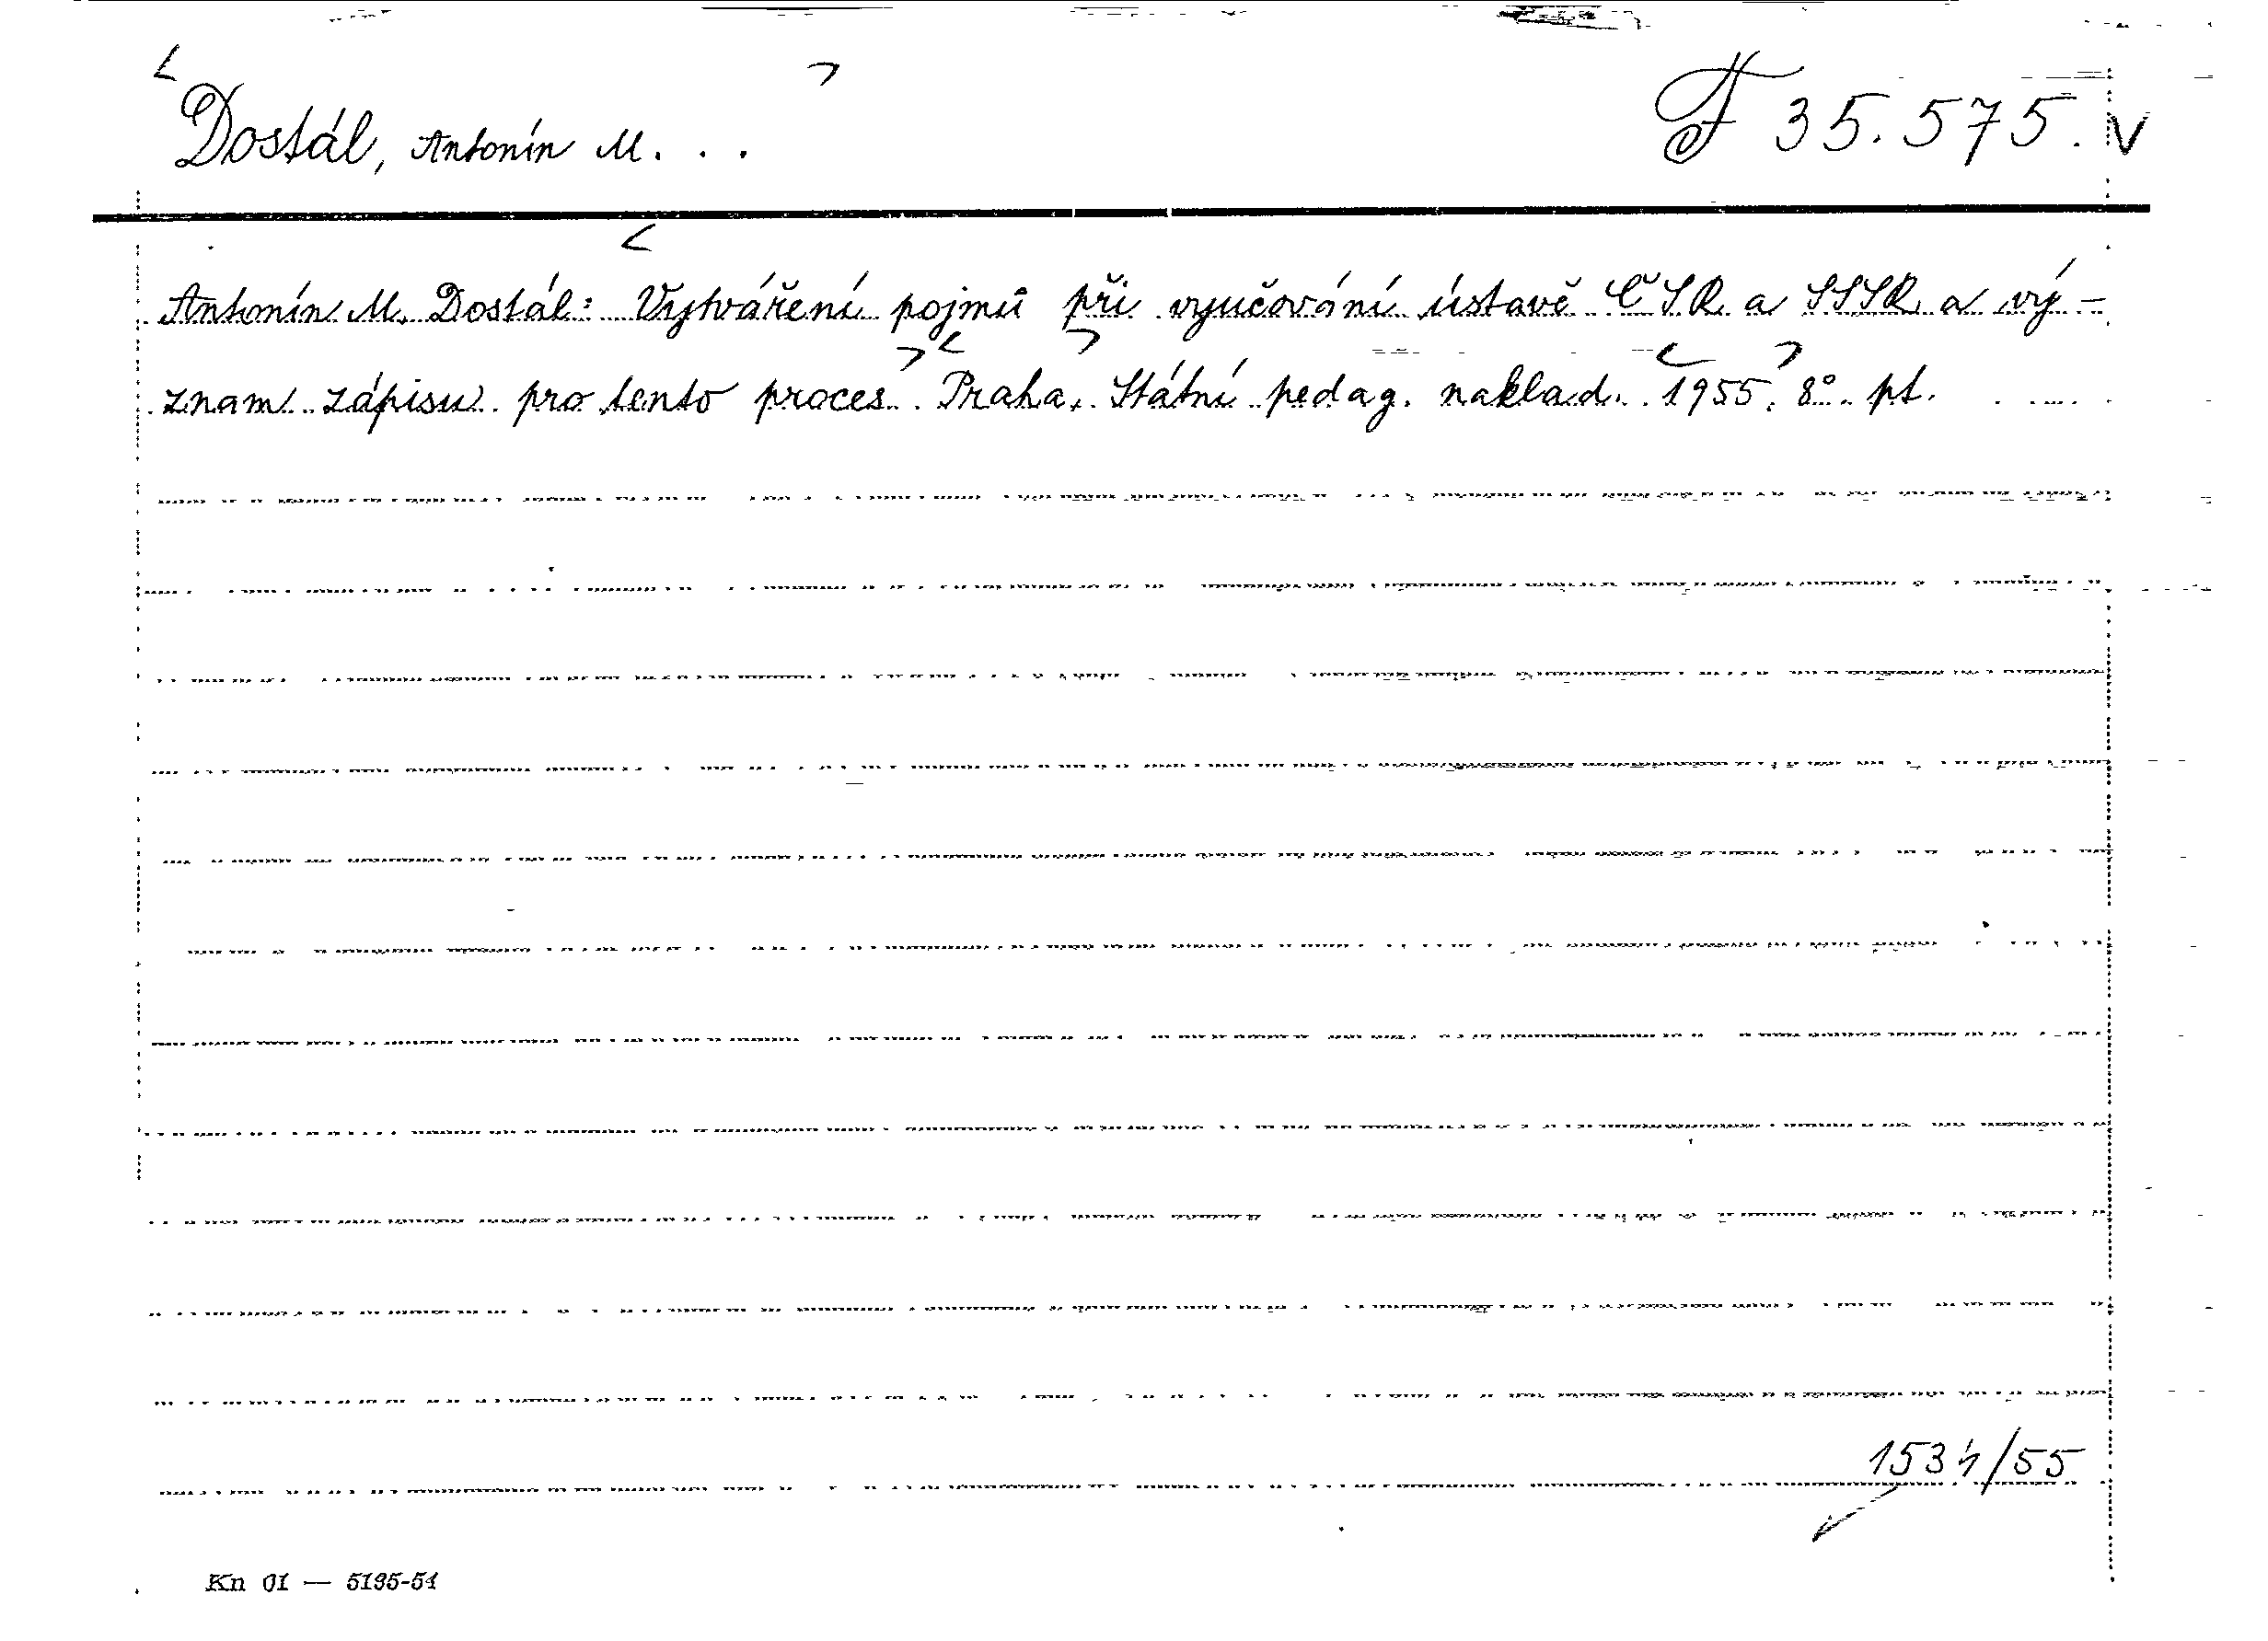 Dostál, Antonín M. . .
F 35.575. V
Antonín M. Dostál: Vytváření pojmů při vyučování ústavě ČSR a SSSR a vý-
znam zápisu pro tento proces. Praha, Státní pedag. naklad. 1955. 8°. pt.
1534/55
Kn 01 — 5195-54